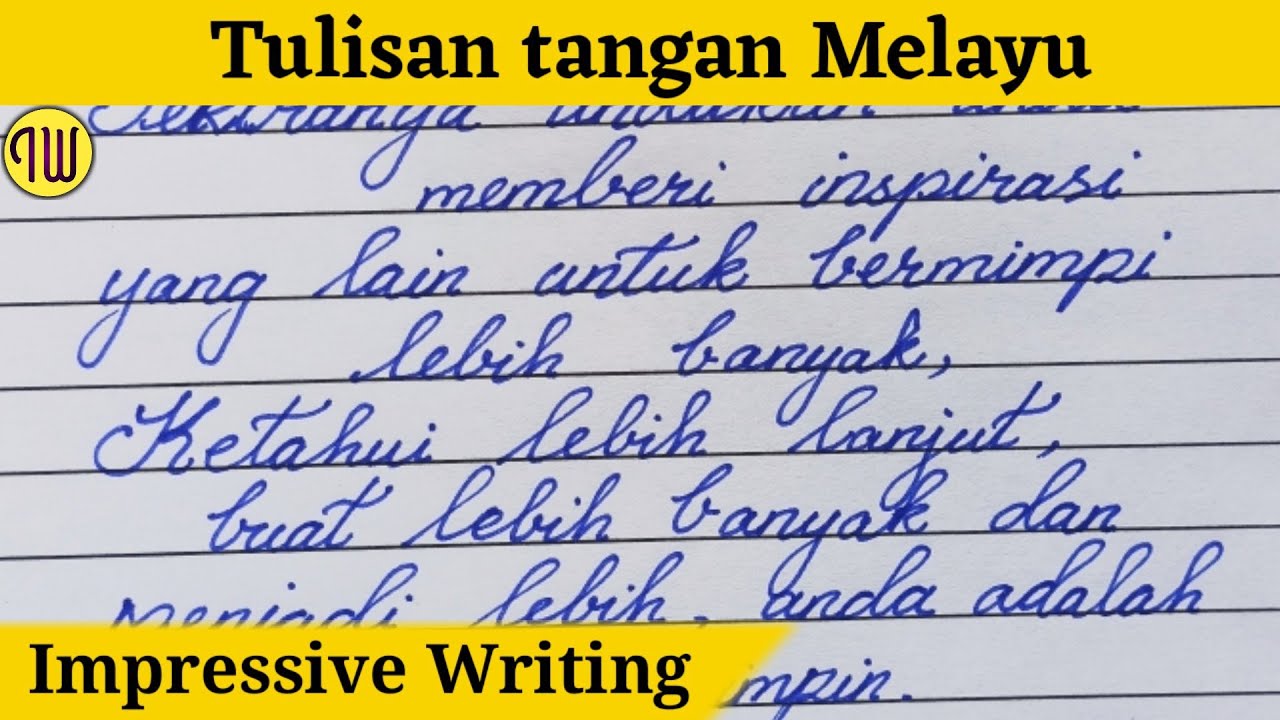 Tulisan tangan Melayu
IW
Sekiranya
memberi inspirasi
yang lain untuk bermimpi
lebih banyak,
Ketahui lebih lanjut,
buat lebih banyak dan
menjadi lebih, anda adalah
Impressive Writing
mpin.